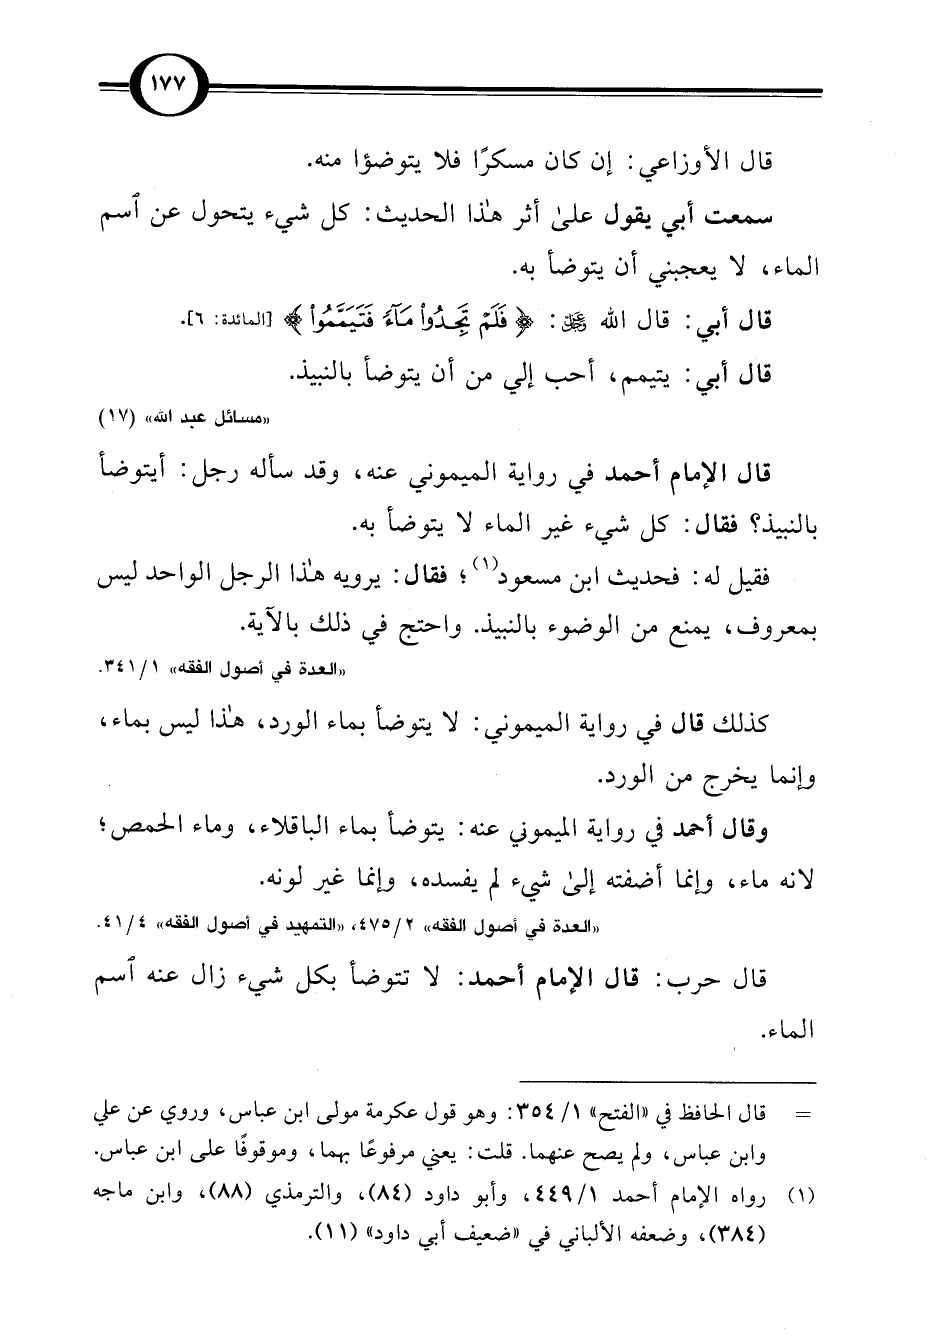 ١٧٧
قال الأوزاعي: إن كان مسكرًا فلا يتوضؤا منه.
سمعت أبي يقول علىٰ أثر هذا الحديث: كل شيء يتحول عن ٱسم
الماء، لا يعجبني أن يتوضأ به.
قال أبي: قال الله ﷻ: ﴿فَلَمْ تَجِدُواْ مَآءً فَتَيَمَّمُواْ﴾ [المائدة: ٦].
قال أبي: يتيمم، أحب إلي من أن يتوضأ بالنبيذ.
«مسائل عبد الله» (١٧)
قال الإمام أحمد في رواية الميموني عنه، وقد سأله رجل: أيتوضأ
بالنبيذ؟ فقال: كل شيء غير الماء لا يتوضأ به.
فقيل له: فحديث ابن مسعود(١)؛ فقال: يرويه هذا الرجل الواحد ليس
بمعروف، يمنع من الوضوء بالنبيذ. واحتج في ذلك بالآية.
«العدة في أصول الفقه» ٣٤١/١.
كذلك قال في رواية الميموني: لا يتوضأ بماء الورد، هذا ليس بماء،
وإنما يخرج من الورد.
وقال أحمد في رواية الميموني عنه: يتوضأ بماء الباقلاء، وماء الحمص؛
لانه ماء، وإنما أضفته إلىٰ شيء لم يفسده، وإنما غير لونه.
«العدة في أصول الفقه» ٤٧٥/٢، «التمهيد في أصول الفقه» ٤١/٤.
قال حرب: قال الإمام أحمد: لا تتوضأ بكل شيء زال عنه ٱسم
الماء.
= قال الحافظ في «الفتح» ٣٥٤/١: وهو قول عكرمة مولى ابن عباس، وروي عن علي
وابن عباس، ولم يصح عنهما. قلت: يعني مرفوعًا بهما، وموقوفًا على ابن عباس.
(١) رواه الإمام أحمد ٤٤٩/١، وأبو داود (٨٤)، والترمذي (٨٨)، وابن ماجه
(٣٨٤)، وضعفه الألباني في «ضعيف أبي داود» (١١).